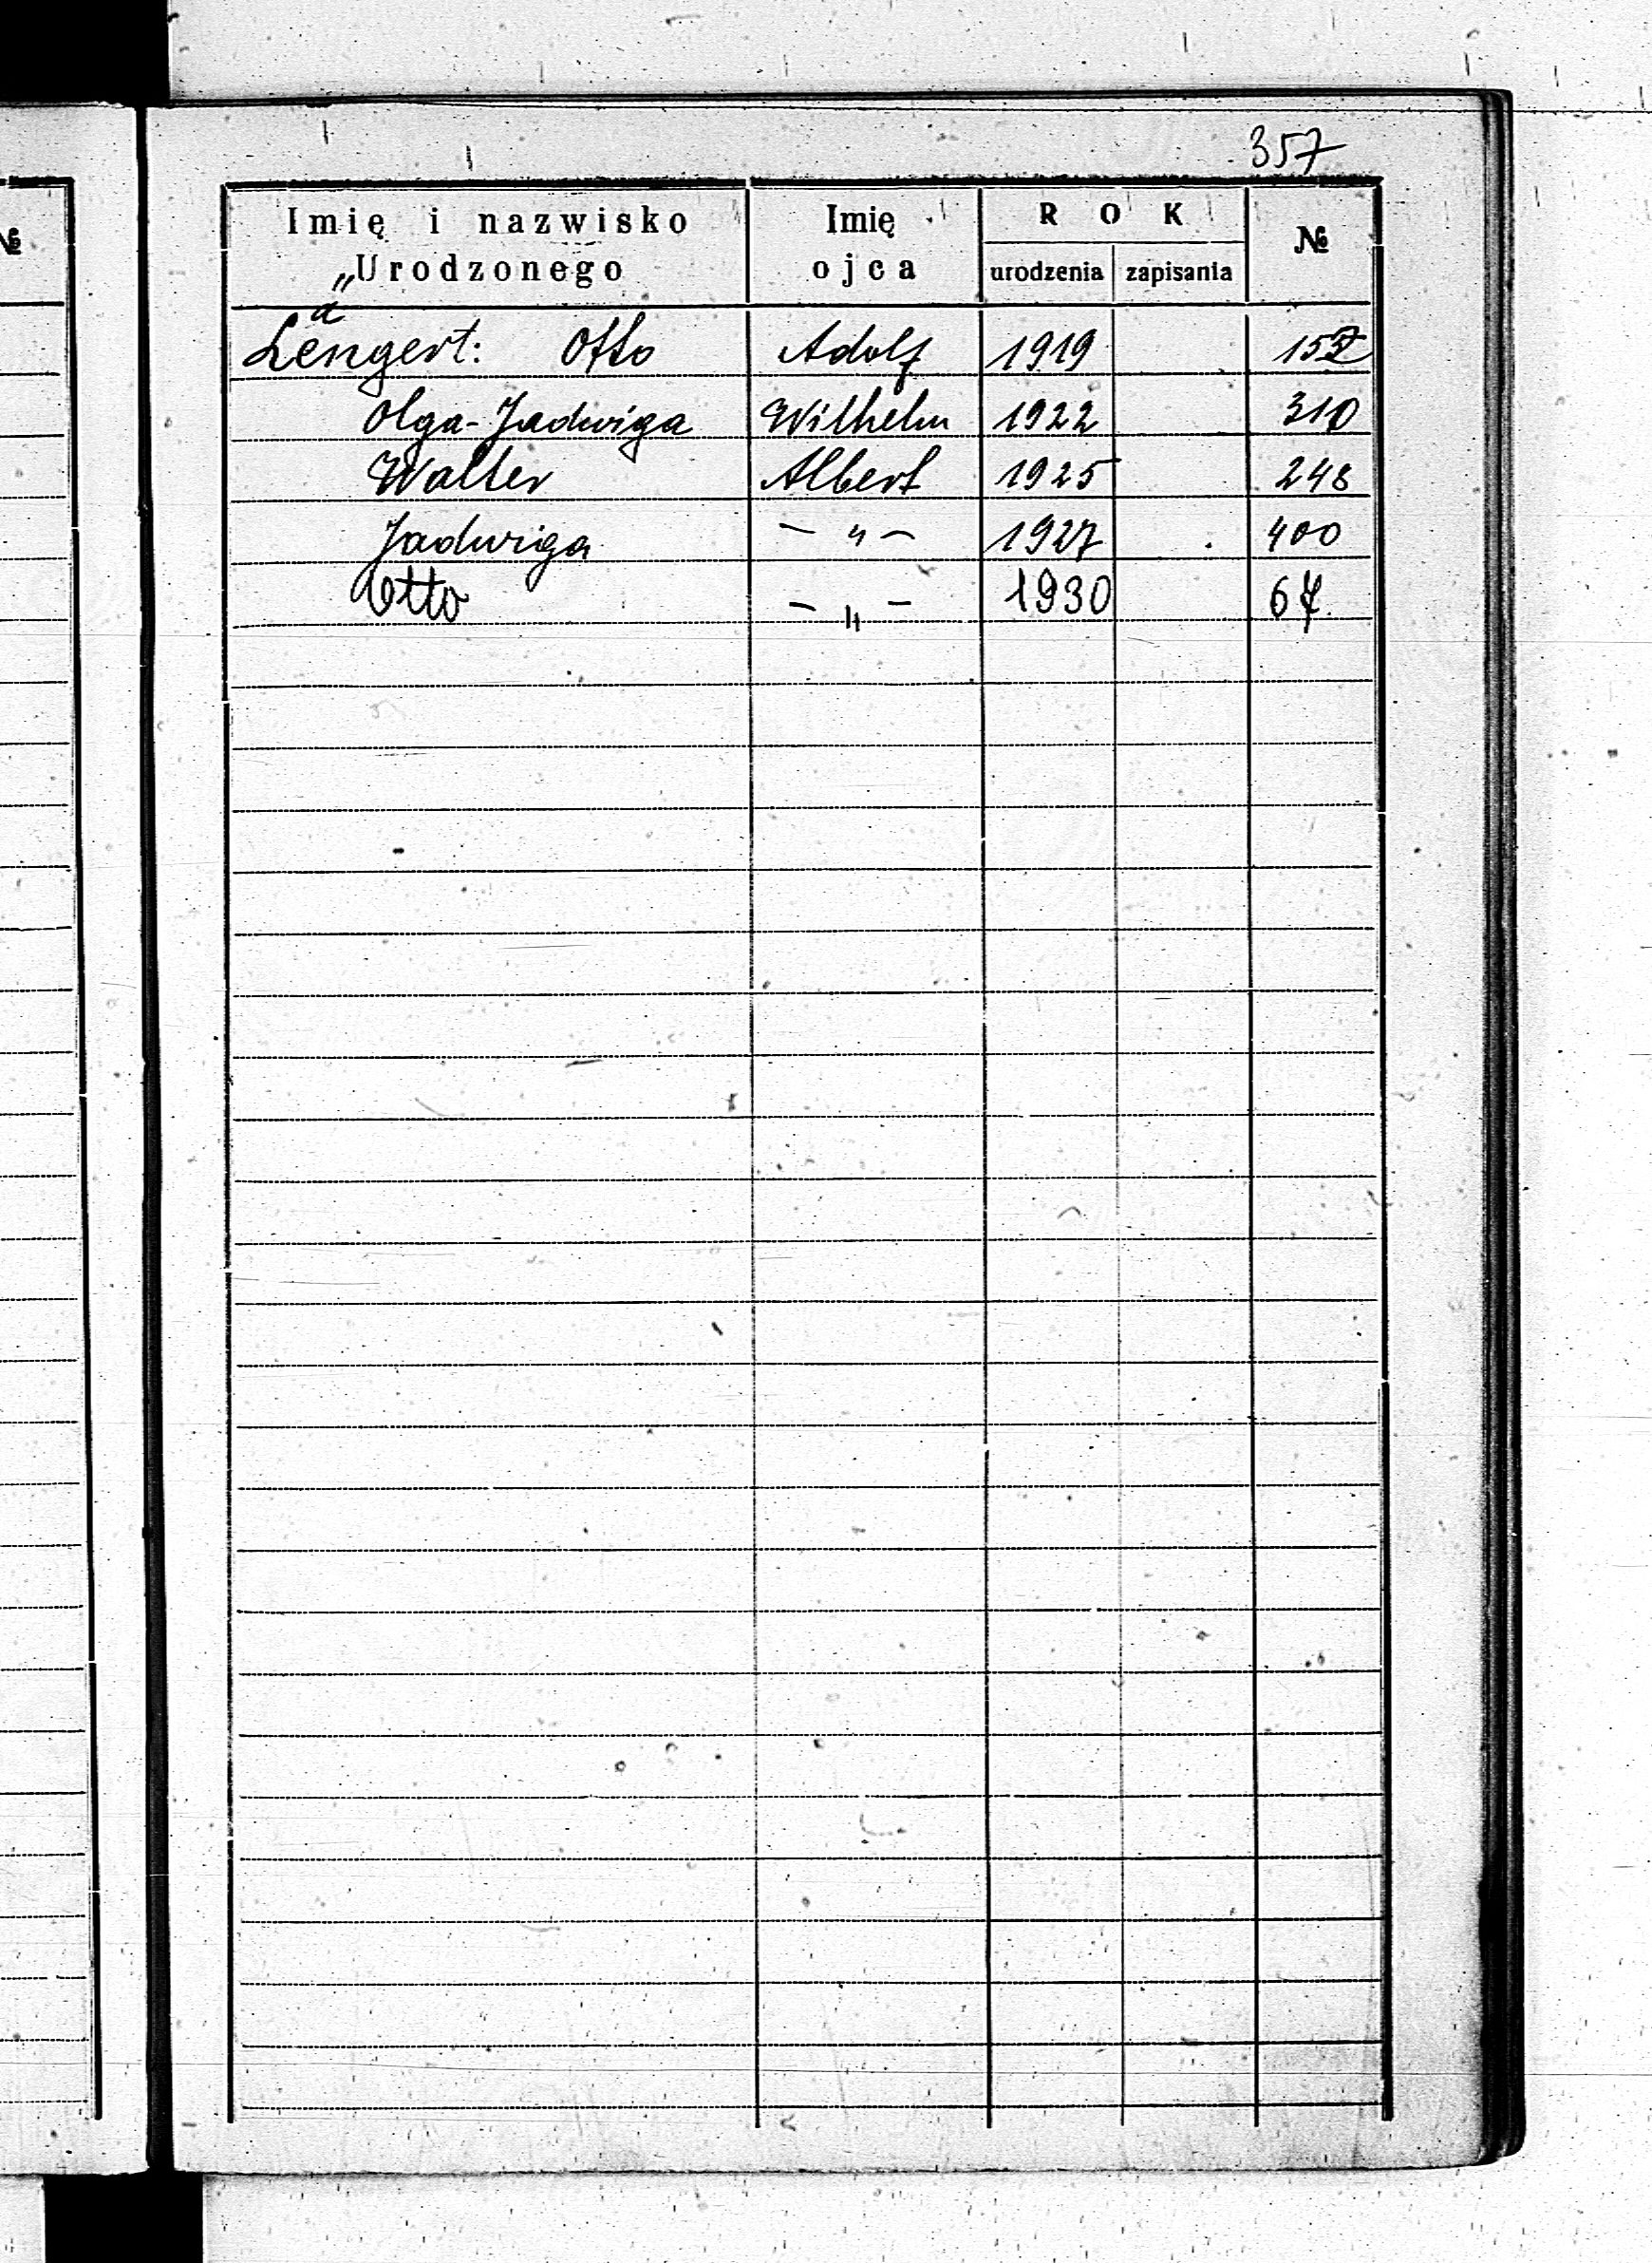 №
357
Imię i nazwisko Urodzonego Imię ojca ROK urodzenia zapisania №
„a
Lengert: Otto Adolf 1919
Olga-Jadwiga Wilhelm 1922 310
Walter Albert 1925 248
Jadwiga — „ — 1927 400
Otto — „ — 1930